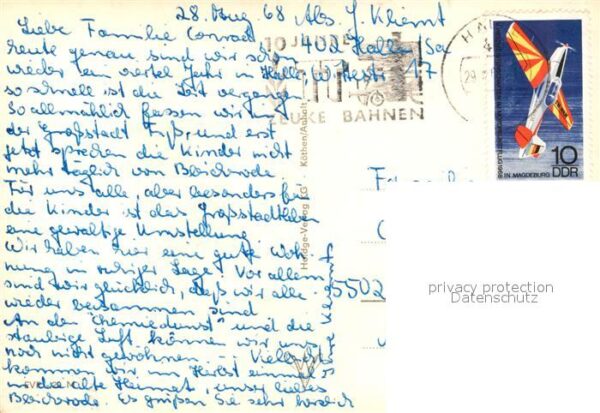 28. Aug 68 Abs. J. Klient
402 Halle/Sa
Liebe Familie Conrad!
heute genau sind wir schon
wieder ein viertel Jahr in Halle
so schnell ist die Zeit vergangen
So allmählich fassen wir in
der Großstadt Fuß, und erst
jetzt sprechen die Kinder nicht
mehr täglich von Bleicherode.
Für uns alle, aber besonders für
die Kinder ist das Großstadtleben
eine gewaltige Umstellung
Wir haben hier eine gute Woh-
nung in ruhiger Lage. Vor allem
sind wir glücklich, daß wir alle
wieder beisammen sind
An den "Chemiedunst" und die
staubige Luft können wir uns
noch nicht gewöhnen – Vielleicht
kommen wir im Herbst einmal
in die alte Heimat, unser liebes
Bleicherode. Es grüßen Sie sehr herzlich
10 JAHRE
ZEUKE BAHNEN
Köthen/Anhalt
5502
10
DDR
IN MAGDEBURG
privacy protection
Datenschutz